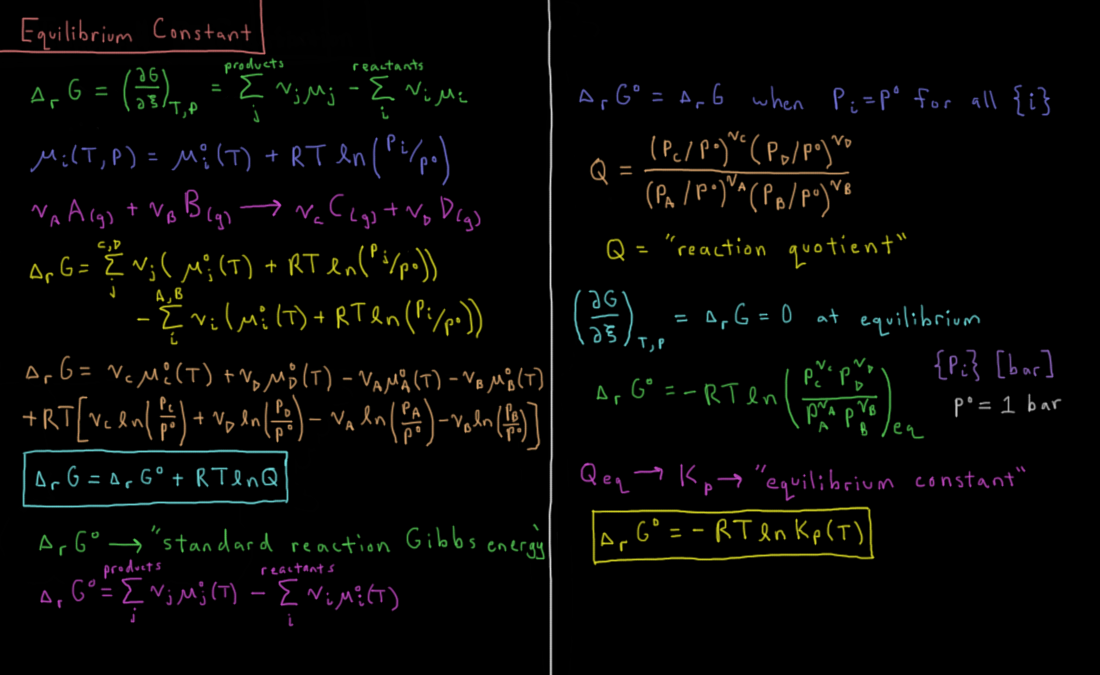 Equilibrium Constant
products reactants
Δᵣ G = (∂G/∂ξ)_T,P = Σ_j ν_j μ_j − Σ_i ν_i μ_i
μ_i(T,P) = μ_i°(T) + RT ln(P_i/P°)
ν_A A(g) + ν_B B(g) → ν_C C(g) + ν_D D(g)
Δᵣ G = Σ_j^{C,D} ν_j( μ_j°(T) + RT ln(P_j/P°))
− Σ_i^{A,B} ν_i( μ_i°(T) + RT ln(P_i/P°))
Δᵣ G = ν_C μ_C°(T) + ν_D μ_D°(T) − ν_A μ_A°(T) − ν_B μ_B°(T)
+ RT[ν_C ln(P_C/P°) + ν_D ln(P_D/P°) − ν_A ln(P_A/P°) − ν_B ln(P_B/P°)]
Δᵣ G = Δᵣ G° + RT ln Q
Δᵣ G° → "standard reaction Gibbs energy"
products reactants
Δᵣ G° = Σ_j ν_j μ_j°(T) − Σ_i ν_i μ_i°(T)
Δᵣ G° = Δᵣ G when P_i = P° for all {i}
Q = (P_C/P°)^ν_C (P_D/P°)^ν_D / (P_A/P°)^ν_A (P_B/P°)^ν_B
Q = "reaction quotient"
(∂G/∂ξ)_T,P = Δᵣ G = 0 at equilibrium
{P_i} [bar]
Δᵣ G° = − RT ln (P_C^ν_C P_D^ν_D / P_A^ν_A P_B^ν_B)_eq
P° = 1 bar
Q_eq → K_P → "equilibrium constant"
Δᵣ G° = − RT ln K_P(T)